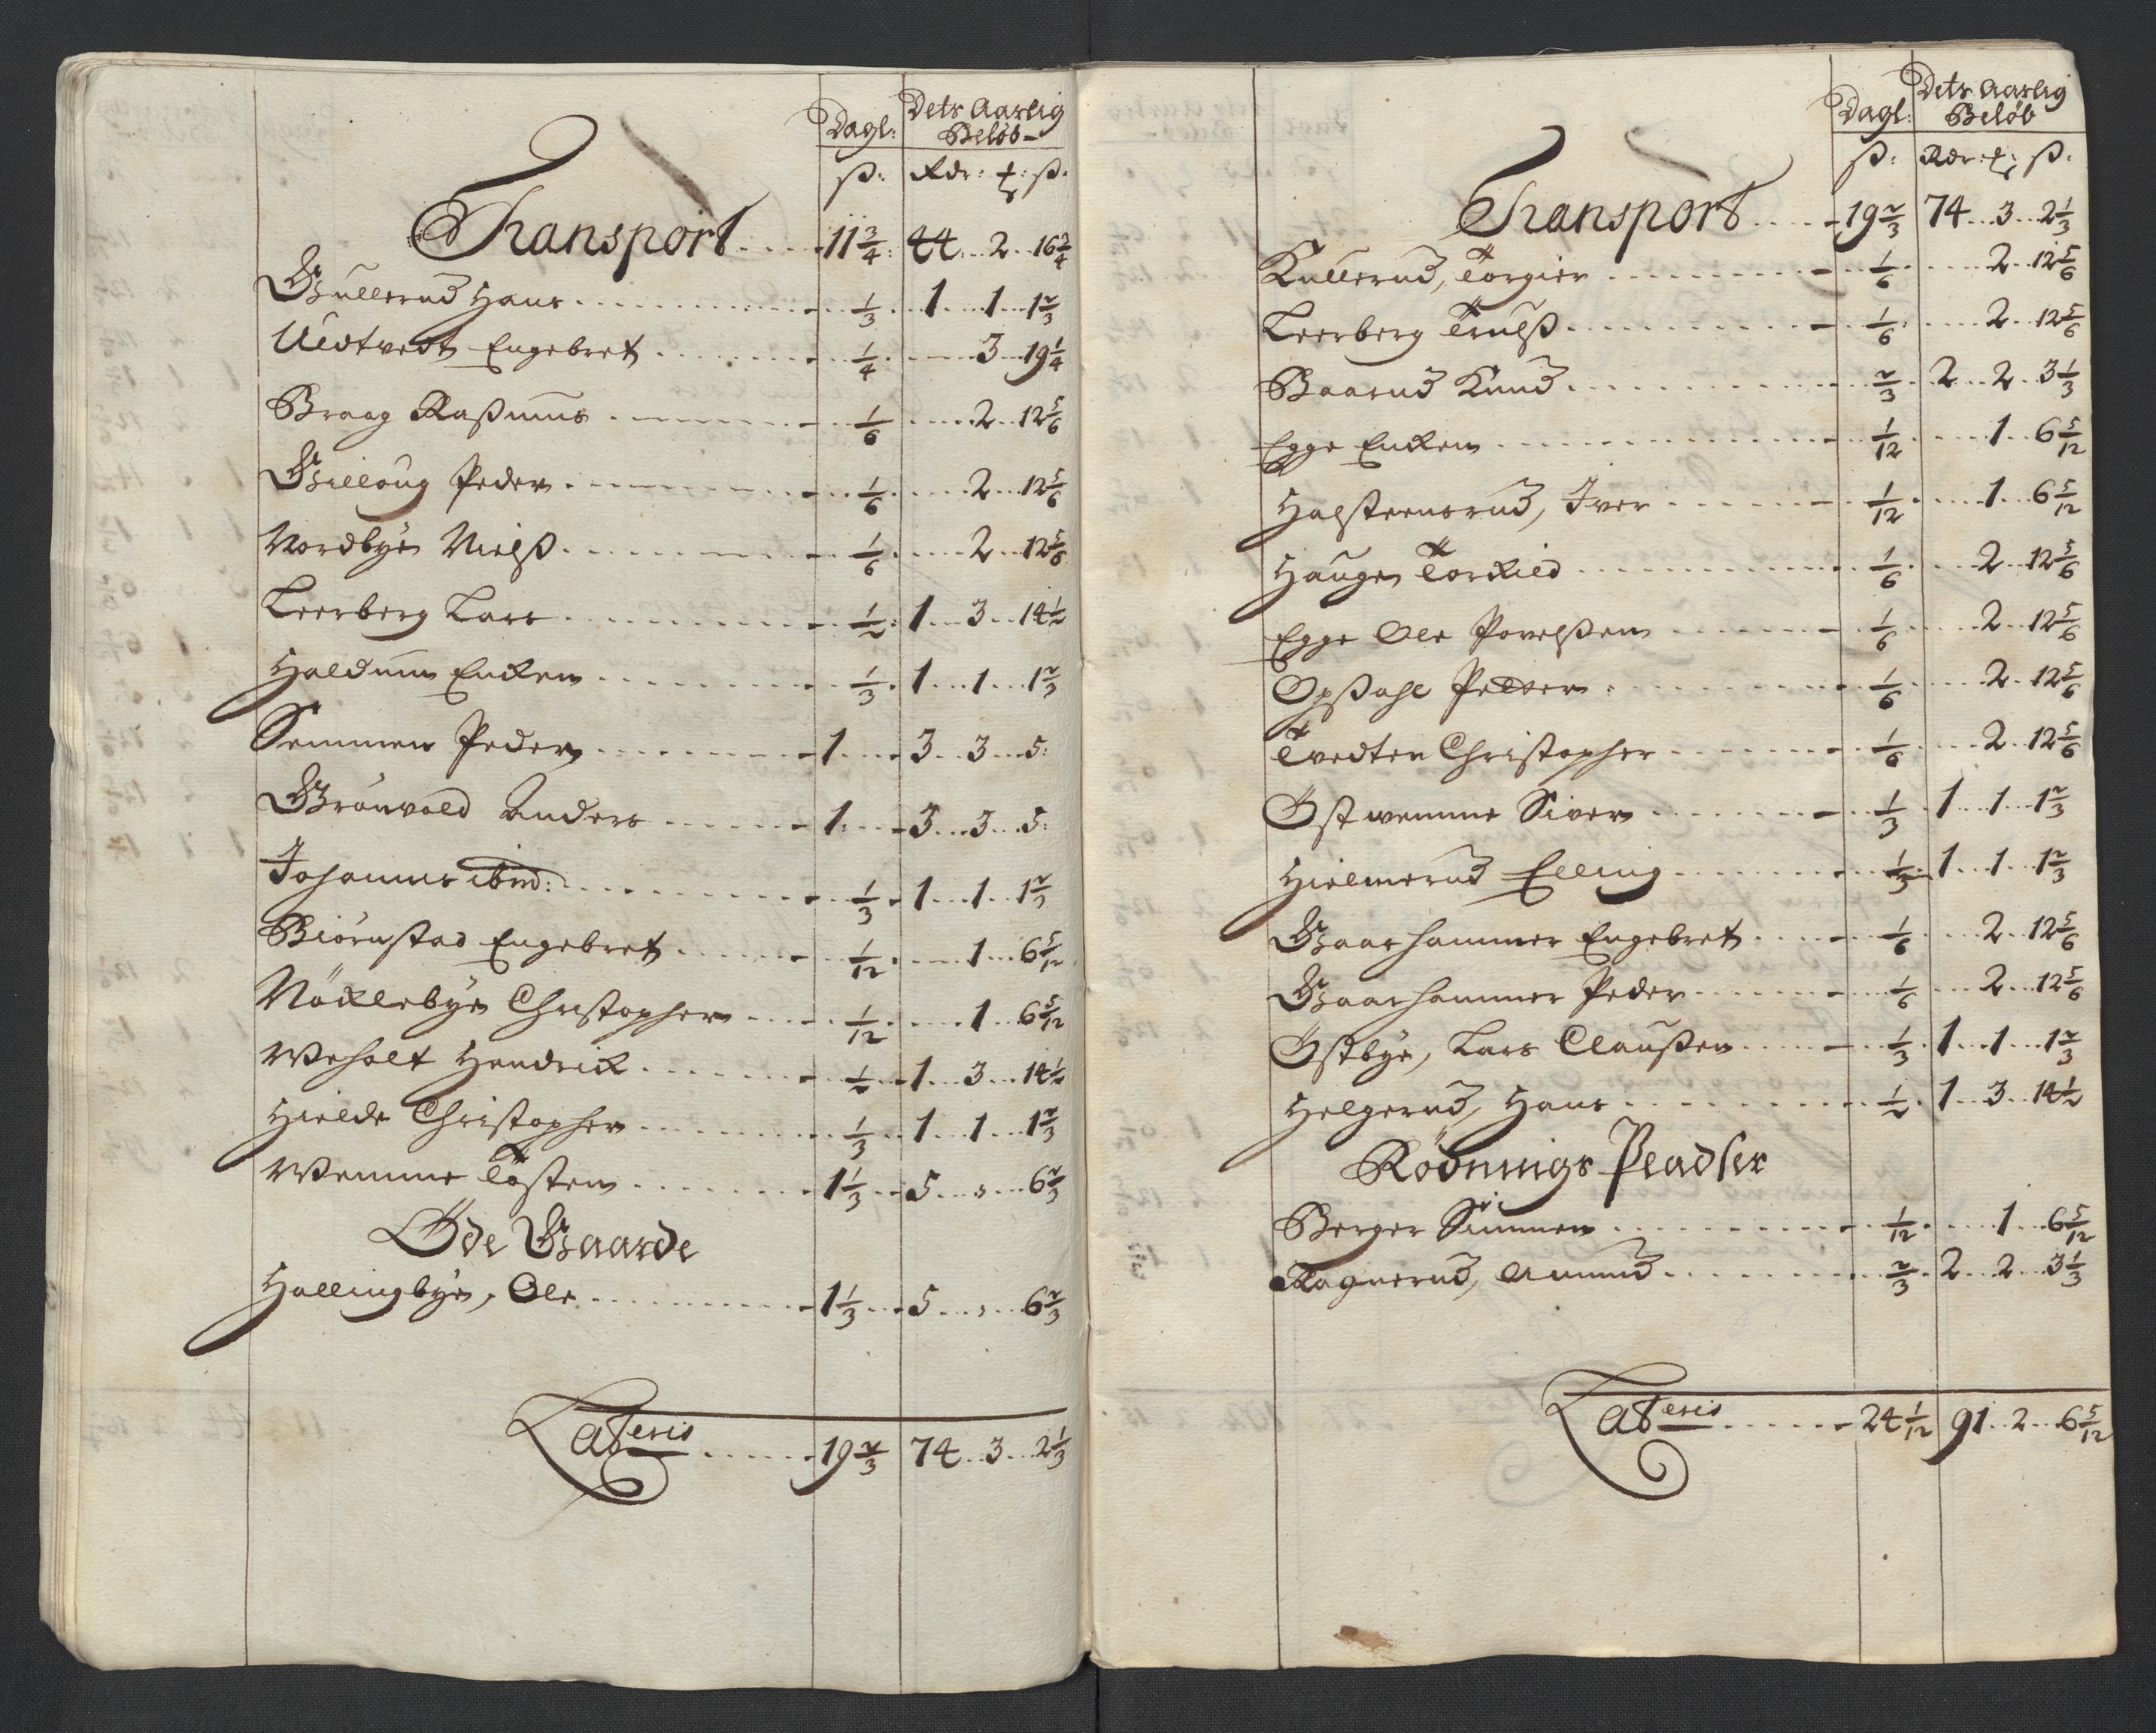 Dagl: Dets Aarlig
Beløb-
ß: Rdr: ort: ß.
Transport 11 3/4 44 2 16 3/4
Gullerud Hans 1/3 1 1 1 2/3
Uedtvedt Engebret 1/4 3 19 1/4
Braag Raßmus 1/6 2 12 5/6
Gilloug Peder 1/6 2 12 5/6
Nordbye Nielß 1/6 2 12 5/6
Leerberg Lars 1/2 1 3 14 1/2
Haldum Enken 1/3 1 1 1 2/3
Semmen Peder 1 3 3 5:
Grönvold Anders 1 3 3 5:
Johannes ibid: 1/3 1 1 1 2/3
Biörnstad Engebret 1/12 1 6 5/12
Nöcklebye Christopher 1/12 1 6 5/12
Weholt Hendrich 1/2 1 3 14 1/2
Hielde Christopher 1/3 1 1 1 2/3
Wemme Tosten 1 1/3 5 " 6 2/3
Öde Gaarde
Hallingbye, Ole 1 1/3 5 " 6 2/3
Lateris 19 2/3 74 3 2 1/3
Dagl: Dets Aarlig
Beløb
ß: Rdr: ort: ß:
Transport 19 2/3 74 3 2 1/3
Kullerud, Torgier 1/6 2 12 5/6
Leerberg Trulß 1/6 2 12 5/6
Baarud Knud 2/3 2 2 3 1/3
Egge Enken 1/12 1 6 5/12
Halsteensrud, Iver 1/12 1 6 5/12
Haugen Torkild 1/6 2 12 5/6
Egge Ole Povelßen 1/6 2 12 5/6
Opßahl Petter 1/6 2 12 5/6
Tvedten Christopher 1/6 2 12 5/6
Östwemme Siver 1/3 1 1 1 2/3
Hielmerud Elling 1/3 1 1 1 2/3
Gaarhammer Engebret 1/6 2 12 5/6
Gaarhammer Peder 1/6 2 12 5/6
Östbye, Lars Claußen 1/3 1 1 1 2/3
Helgerud, Hans 1/2 1 3 14 1/2
Rödnings Pladser
Berger Simmen 1/12 1 6 5/12
Ragnerud, Amund 2/3 2 2 3 1/3
Lateris 24 1/12 91 2 6 5/12